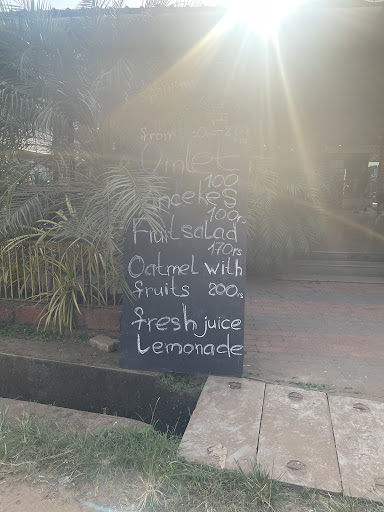 from
Omlet
100
Pancekes
100rs
Fruit salad
170rs
Oatmel with
fruits 200rs
fresh juice
Lemonade